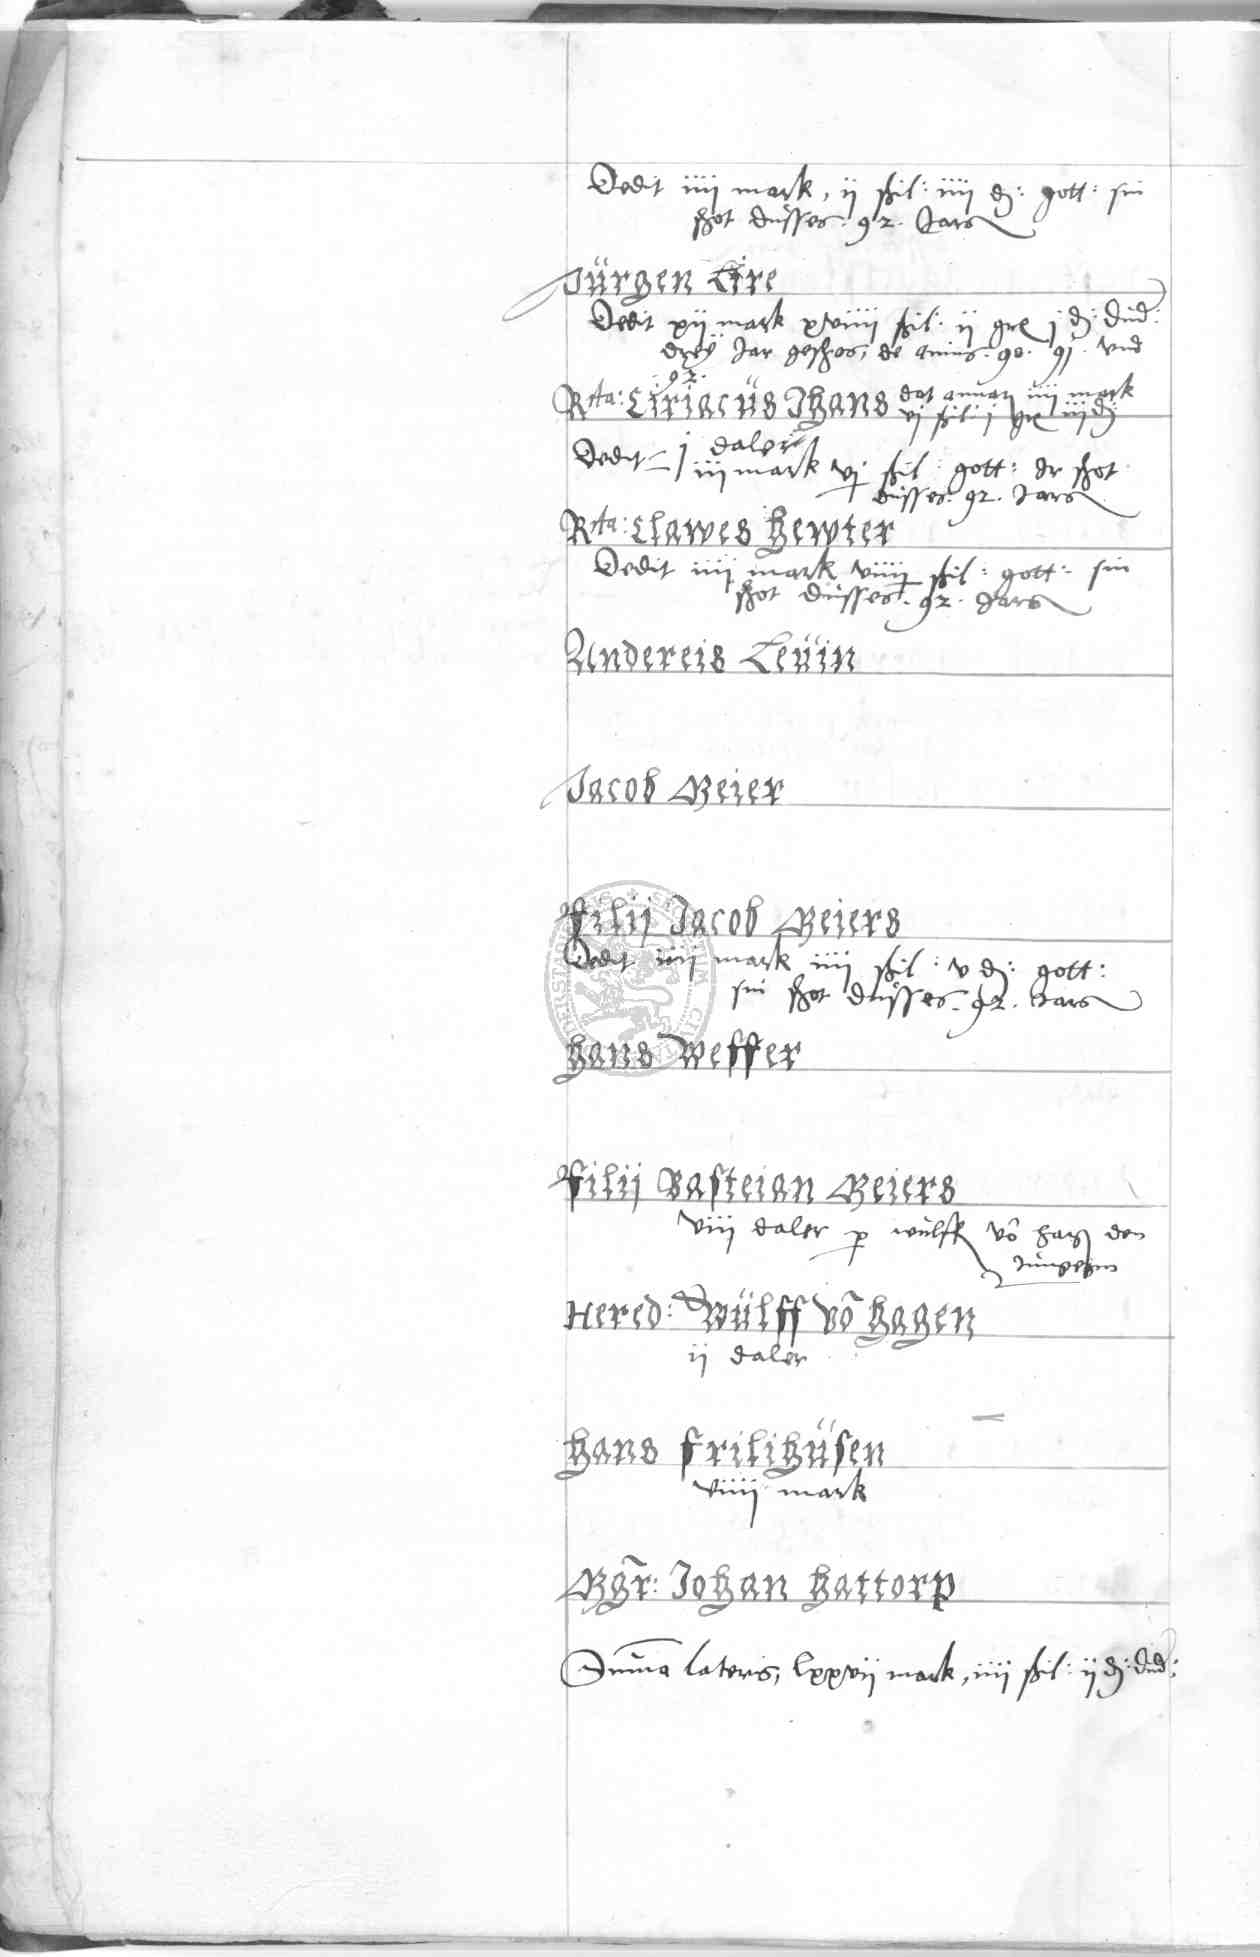 Dedit iiij mark, ij ßil: iiij d: gott: sin
schot düsses. 92. Jars
Jürgen Lire
Dedit xij mark xviiij ßil: ij gr j d: dud:
drey Jar geschos, de annis. 90. 91. vnd
92.
Rta: Ciriacüs Jhans dat annuat iiij mark
vj ßil: j gr iij d
Dedit j daler
iij mark vj ßil: gott: dr schot
düsses. 92. Jars
Rta: Clawes hewter
Dedit iiij mark viiij ßil: gott: sin
schot düsses. 92. Jars
Andereis Leüin
Jacob Meier
filij Jacob Meiers
Dedit iiij mark iiij ßil: v d: gott:
sin schot düsses. 92. Jars
hans weffer
filij Basteian Meiers
viij daler p wülff võ hag den
Jungern
Hered: Wülff võ hagen
ij daler
hans frilihüsen
viiij mark
Mgr: Johan hattorp
Suma lateris, lxxvij mark, iiij ßil: ij d: dud: